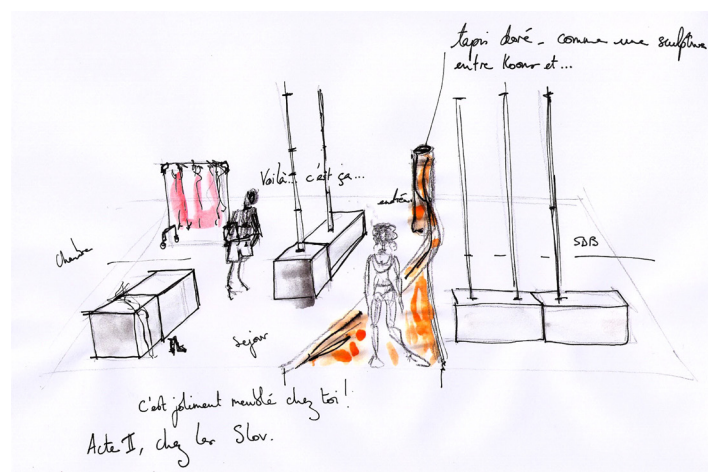 tapis doré - comme une sculpture
entre Koons et...
Voilà... c'est ça...
entrée
chambre
SDB
sejour
c'est joliment meublé chez toi !
Acte II, chez les Slov.